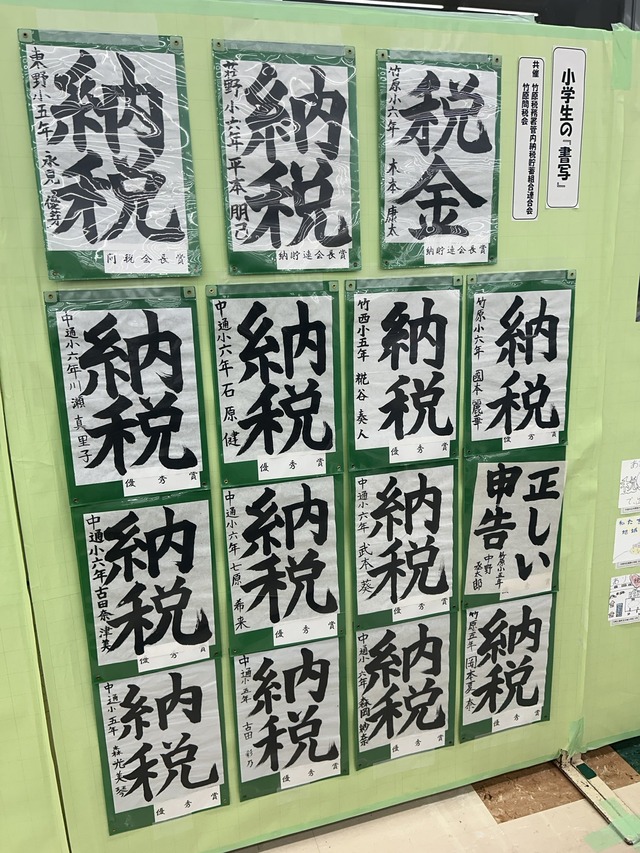 小学生の『書写』
共催 竹原税務署管内納税貯蓄組合連合会
竹原間税会
税金
竹原小六年 木本 康太
納貯連会長賞
納税
荘野小六年 平本 朋己
納貯連会長賞
納税
東野小五年 永見 優芽
間税会長賞
納税
竹原小六年 國本 麗華
優秀賞
納税
竹西小五年 糀谷 奏人
優秀賞
納税
中通小六年 石原 健
優秀賞
納税
中通小六年 川瀬 真里子
優秀賞
正しい
申告
竹原小五年
中野 丞太郎
納税
中通小六年 武本 葵
優秀賞
納税
中通小六年 七原 希来
優秀賞
納税
中通小六年 古田奈津美
優秀賞
納税
竹原五年 岡本夏奈
優秀賞
納税
中通小六年 森岡 紗奈
優秀賞
納税
中通小五年 古田 彩乃
優秀賞
納税
中通小五年 森 光美琴
優秀賞